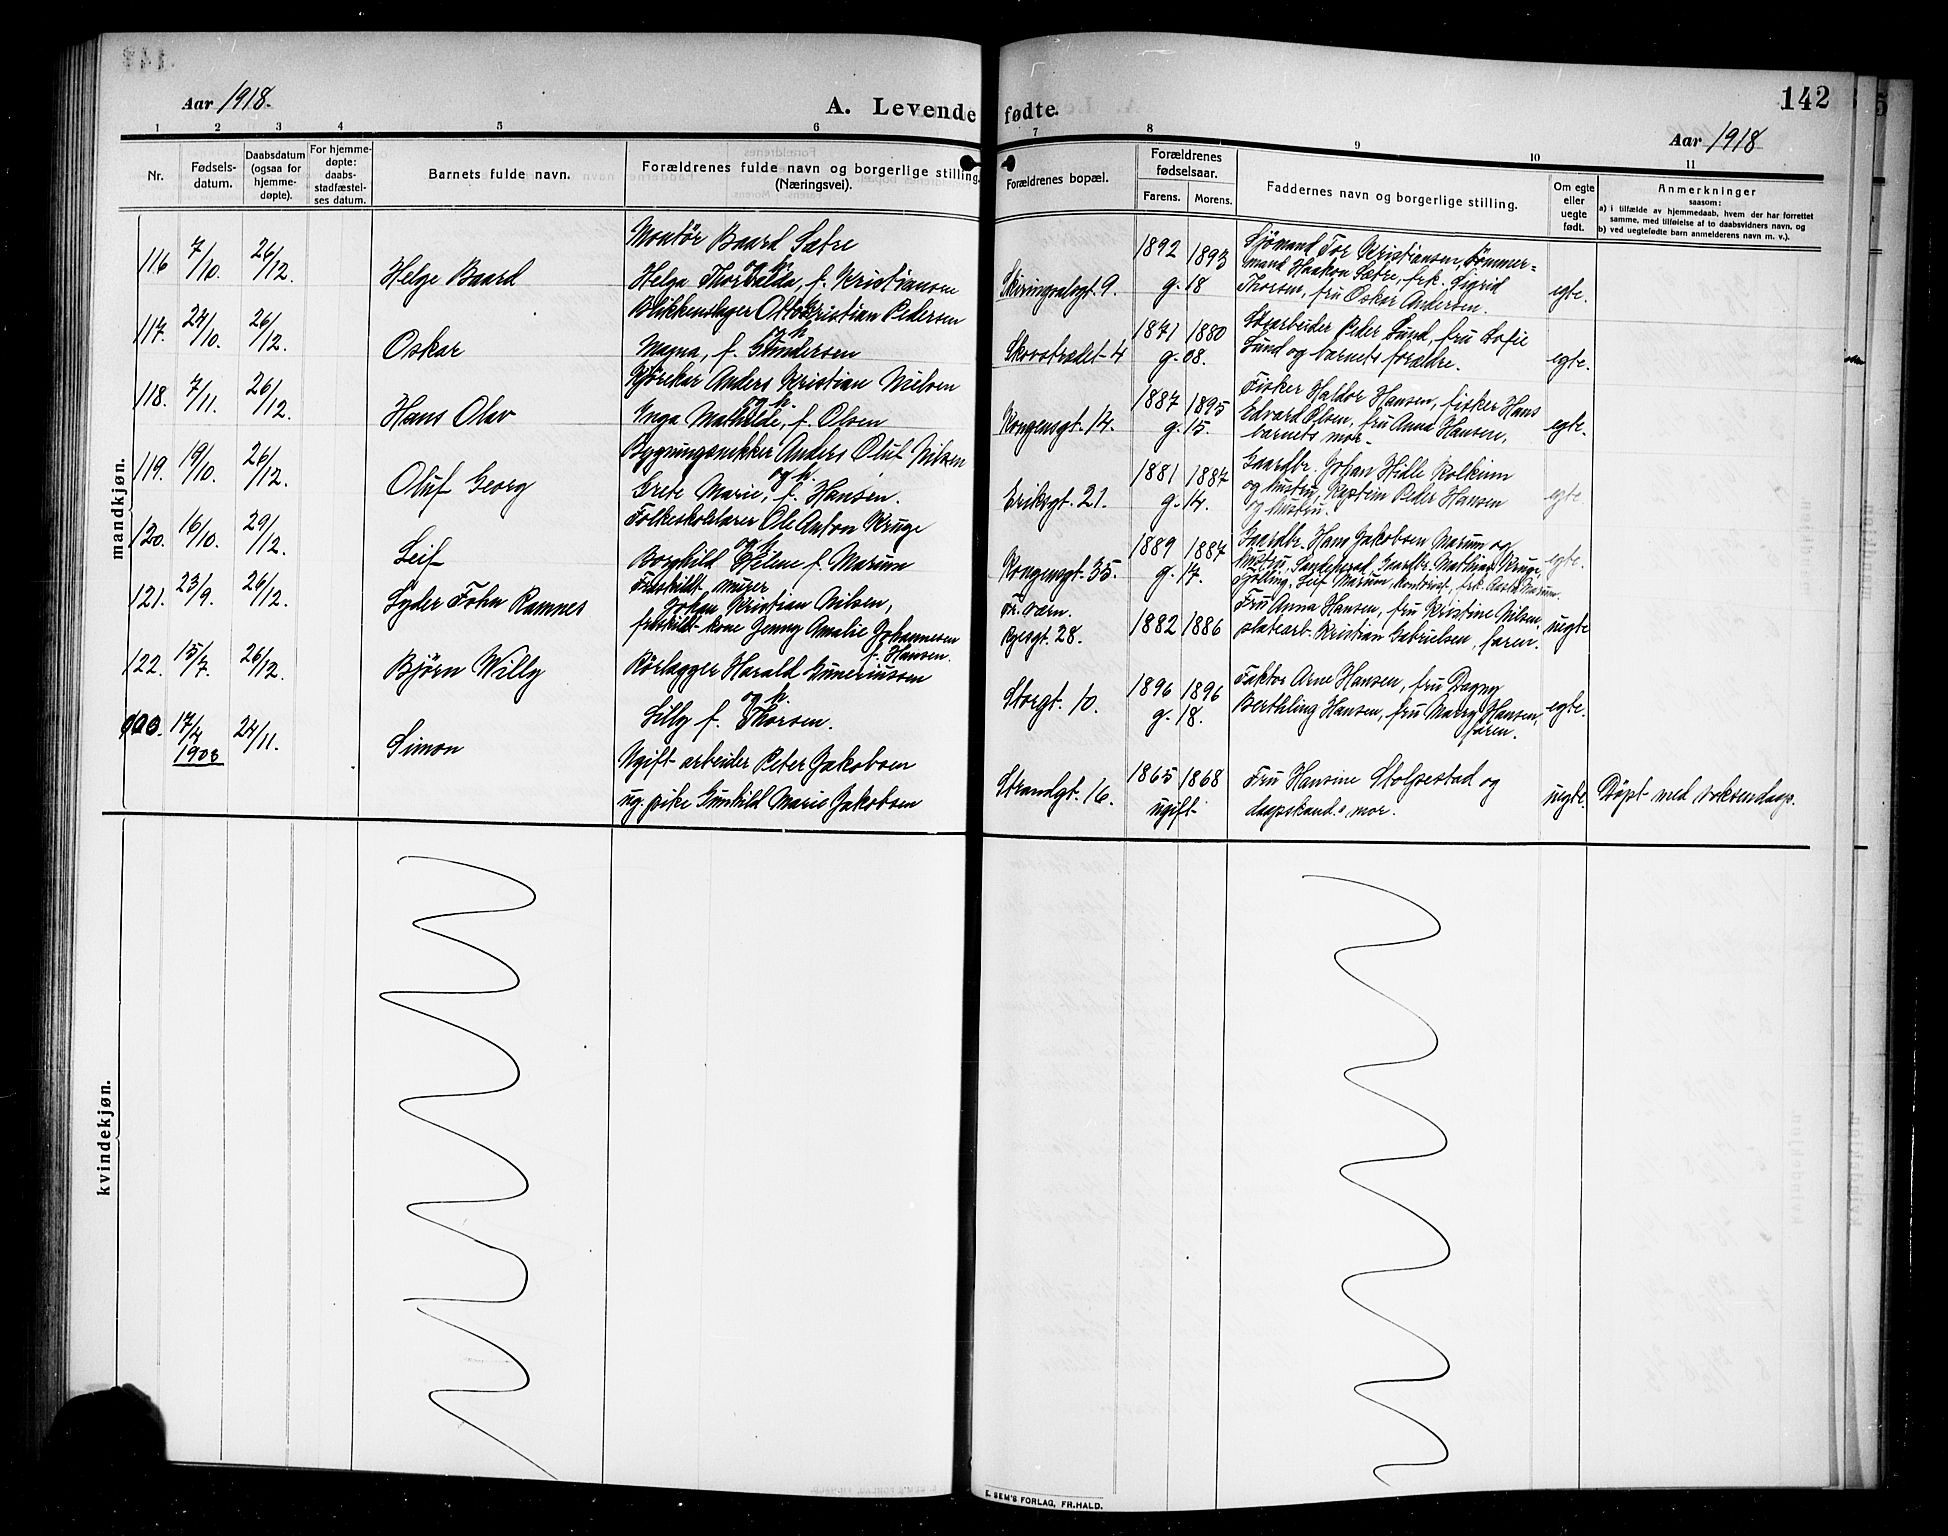 Aar 1918.
A. Levende fødte.
142
Aar 1918
1 2 3 4 5 6 7 8 9 10 11
Nr.
Fødsels-
datum.
Daabsdatum
(ogsaa for
hjemme-
døpte).
For hjemme-
døpte:
daabs-
stadfæstel-
ses datum.
Barnets fulde navn.
Forældrenes fulde navn og borgerlige stilling.
(Næringsvei).
Forældrenes bopæl.
Forældrenes
fødselsaar.
Farens. Morens.
Faddernes navn og borgerlige stilling.
Om egte
eller
uegte
født.
Anmerkninger
saasom:
a) i tilfælde av hjemmedaab, hvem der har forrettet
samme, med tilføielse af to daabsvidners navn, og
b) ved uegtefødte barn anmelderens navn m. v.).
mandkjøn.
116 7/10. 26/12. Helge Baard
Montør Baard Sætre
og h.
Helga Thorvalda, f. Kristiansen
Skiringsalsgt. 9.
1892 1893
g. 18
Sjømand Tor Kristiansen, tømmer=
mand Haakon Sætre, frk. Sigrid
Thorsen, fru Oskar Andersen.
egte.
117. 24/10. 26/12. Oskar
Blikkenslager Otto Kristian Pedersen
og h.
Magna, f. Gundersen
Skovstrædet 4
1871 1880
g. 08.
Peder Lund, fru Sofie
Lund og barnets forældre.
egte.
118. 7/11. 26/12. Hans Olav
Kjørekar Anders Kristian Nielsen
og h.
Inga Mathilde, f. Olsen
Kongensgt. 14.
1887 1895
g. 15.
Fisker Haldor Hansen, fisker Hans
Edvard Olsen, fru Anna Hansen,
barnets mor.
egte.
119. 19/10. 26/12. Oluf Georg
Bygningssnekker Anders Oluf Nilsen
og h.
Grete Marie, f. Hansen.
Eriksgt. 21.
1881 1884
g. 14.
Gaardbr. Johan Hidle
og hustru, Kaptein Peder Hansen
og hustru.
egte.
120. 16/10. 29/12. Leif
Folkeskolelærer Ole Anton Kruge
og h.
Borghild Helene f. Marum
Kongensgt. 35.
1889 1884
g. 17.
Gaardbr. Hans Jakobsen Marum og
hustru, Sandeherad, Gaardbr. Mathias Kruge,
Leif Marum, kontorist, frk. Aasta Marum.
egte.
121. 23/9. 26/12. Lyder John Ramnes
Fraskilt murer
Johan Kristian Nilsen,
fraskilt kone Jenny Amalie Johannesen
f. Hansen.
Fr.værn.
Bjergt. 28.
1882 1886
Fru Anna Hansen, fru Kristine Nilsen,
platearb. Kristian Gabrielsen, faren.
uegte
122. 15/7. 26/12. Bjørn Willy
Rørlægger Harald Gunerinssen
og h.
Lilly f. Thorsen.
Storgt. 10.
1896 1896
g. 18.
Faktor Arne Hansen, fru Dagny
Berthling Hansen, fru Marry Hansen,
faren.
egte.
17/4 1903 24/11. Simon
Ugift arbeider Peter Jakobsen
ug. pike Gunhild Marie Jakobsen
Strandgt. 16.
1865 1868
ugift
Fru Hansine Stolpestad og
daapskand.s mor.
uegte.
Døpt med voksendaap.
kvindekjøn.
E. SEM'S FORLAG, FR.HALD.